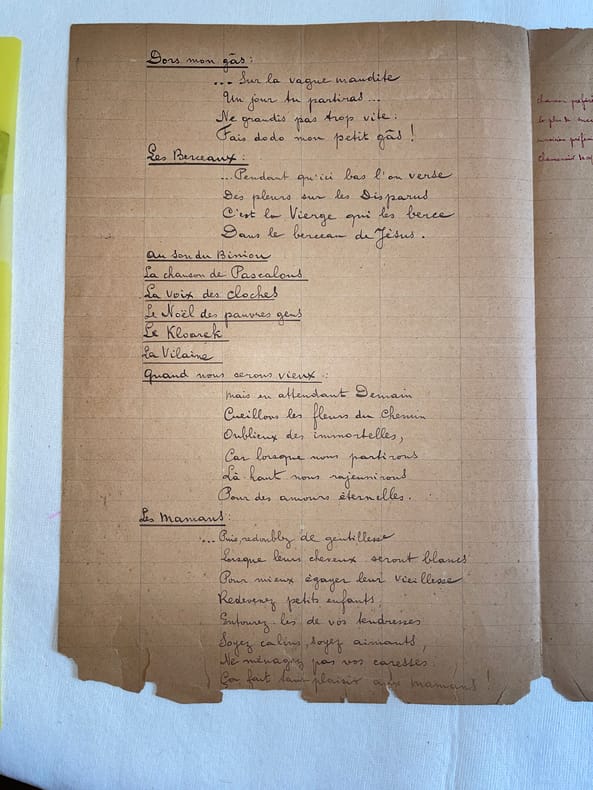 Dors mon gâs :
... Sur la vague maudite
Un jour tu partiras ...
Ne grandis pas trop vite :
Fais dodo mon petit gâs !
Les Berceaux :
... Pendant qu'ici bas l'on verse
Des pleurs sur les Disparus
C'est la Vierge qui les berce
Dans le berceau de Jésus .
au son du Biniou
La chanson de Pascalous
La voix des cloches
Le Noël des pauvres gens
Le Kloarek
La Vilaine
Quand nous serons vieux :
mais en attendant Demain
Cueillons les fleurs du Chemin
Oublieux des immortelles,
Car lorsque nous partirons
Là haut nous rajeunirons
Pour des amours éternelles .
Les Mamans :
... Puis, redoublez de gentillesse
Lorsque leurs cheveux seront blancs
Pour mieux égayer leur vieillesse
Redevenez petits enfants,
Entourez-les de vos tendresses
Soyez calins, soyez aimants,
Ne ménagez pas vos caresses :
Ça fait tant plaisir aux mamans !
chanson préfér
le plus de
préfér